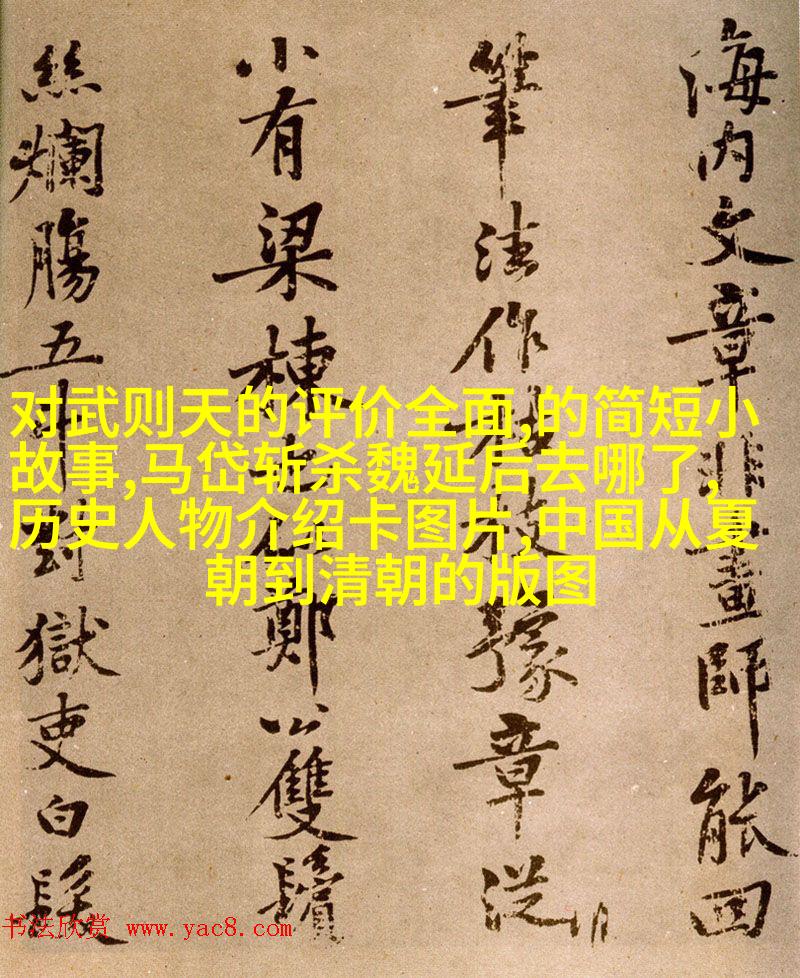 海内文章非畫師能回
筆法作枯枝豫章從
小有梁棟也似鄭公雙鬢
絲爛腸五斗對獄吏白髮
对武则天的评价全面,的简短小
故事,马岱斩杀魏延后去哪了,
历史人物介绍卡图片,中国从夏
朝到清朝的版图
书法欣赏 www.yac8.com